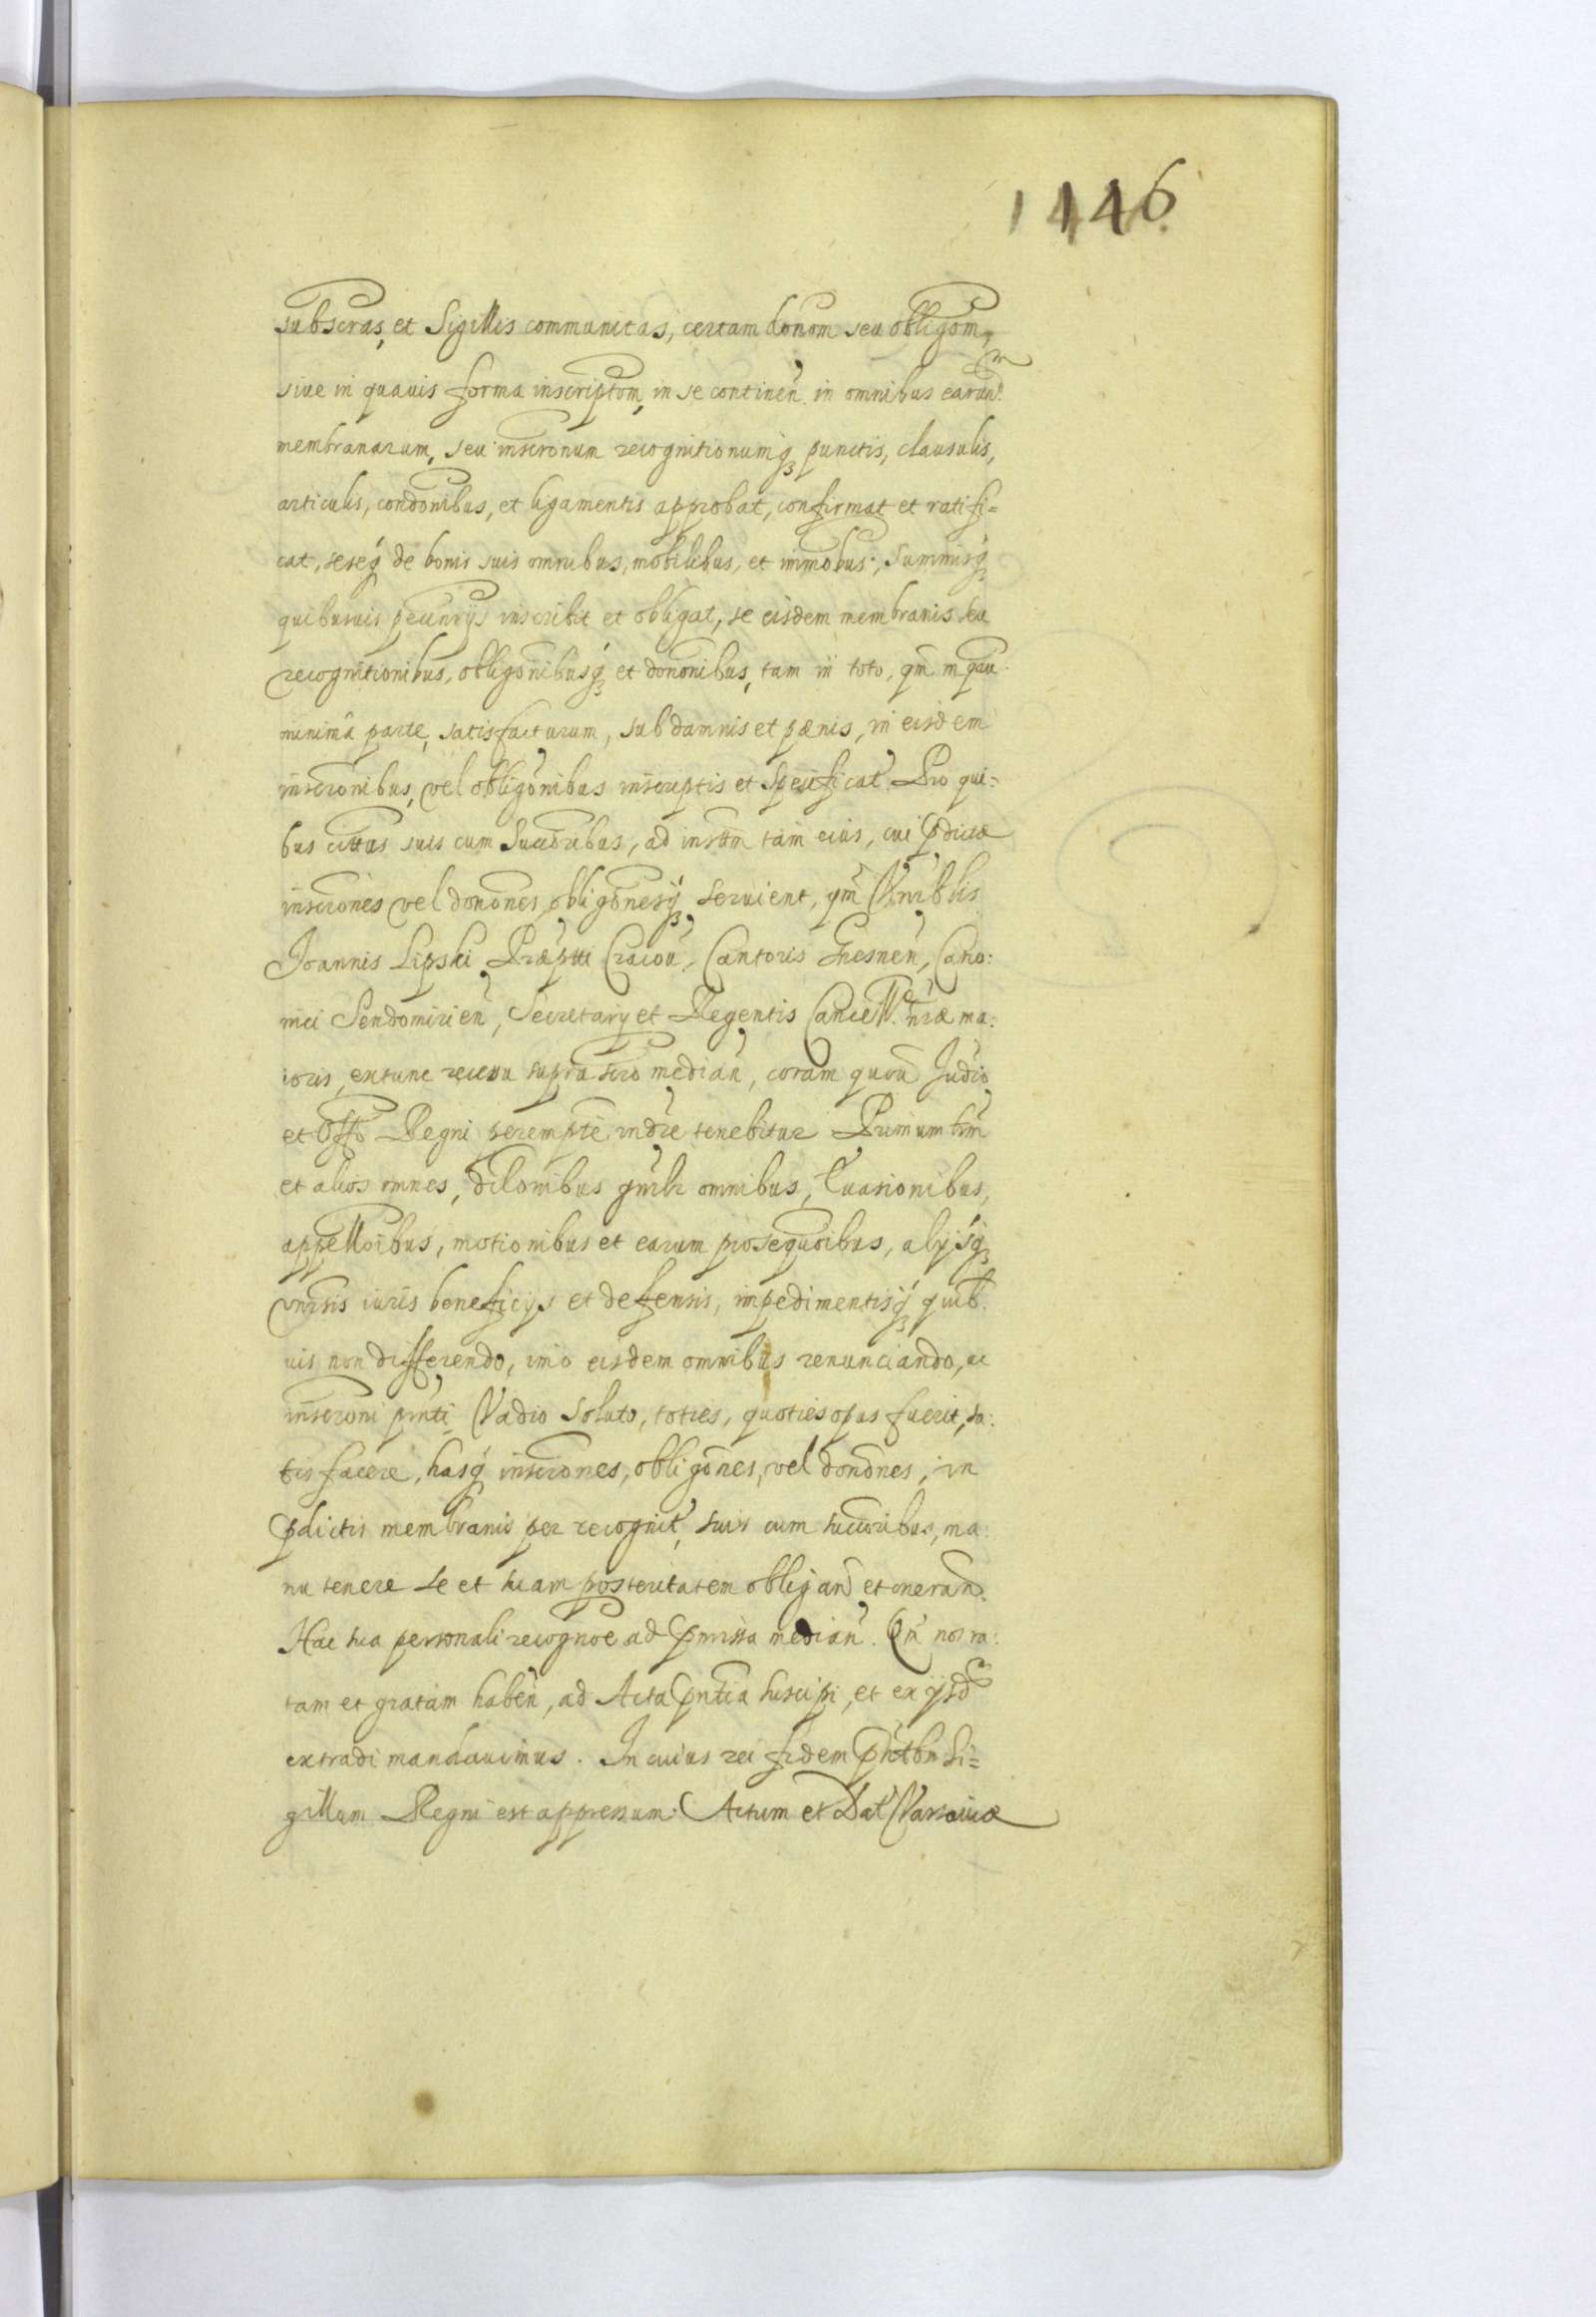 1446
subscras, et Sigillis communitas, certam donom seu obligom,
siue in quauis forma inscriptom, in se continen̄. in omnibus earundem
membranarum, seu inscronum recognitionumq́; punctis, clausulis,
articulis, condonibus, et ligamentis approbat, confirmat et ratifi=
cat, seseq́; de bonis suis omnibus, mobilibus, et immobus, summisq́;
quibusuis pecunrijs inscribit et obligat, se eisdem membranis seu
recognitionibus, obligonibusq́; et dononibus, tam in toto, qm̄ in quau
minima parte, satisfacturum, sub damnis et pænis, in eisdem
inscronibus, vel obligonibus inscriptis et specificat. Pro qui=
bus cittus suis cum Succoribus, ad instm̄ tam eius, cui p̄dictæ
inscrones vel donones obligonesq́; seruient, qm̄ Vnrblis
Joannis Lipski Præptti Cracou, Cantoris Gnesnen̄, Cano:
nici Sendomirien̄, Secretarij et Regentis Cancell. nræ ma:
ioris, extunc recessu supra scro median̄, coram quouis Judio
et Offo Regni peremptē indre tenebitur Primum trm̄
et alios omnes, dilonibus gnrlr omnibus, euasionibus,
appelloibus, motionibus et earum prosequoibus, alijsq́;
vnrsis iuris beneficijs et defensis, impedimentisq́; quib.
uis non differendo, imo eisdem omnibus renunciando, ac
inscroni pnti Vadio soluto, toties, quoties opus fuerit, sa:
tis facere, hasq́; inscrones, obligones, vel donones, in
p̄dictis membranis per recognit, suis cum succoribus, ma:
nu tenere se et suam posteritatem obligan̄d et oneran̄d.
Hac sua personali recognoe ad p̄missa median̄. Qm̄ nos ra:
tam et gratam haben̄, ad Acta p̄ntia suscipi, et ex ijsd
extradi mandauimus. In cuius rei fidem p̄ntbus Si=
gillum Regni est appressum. Actum et Dat Varsauiæ